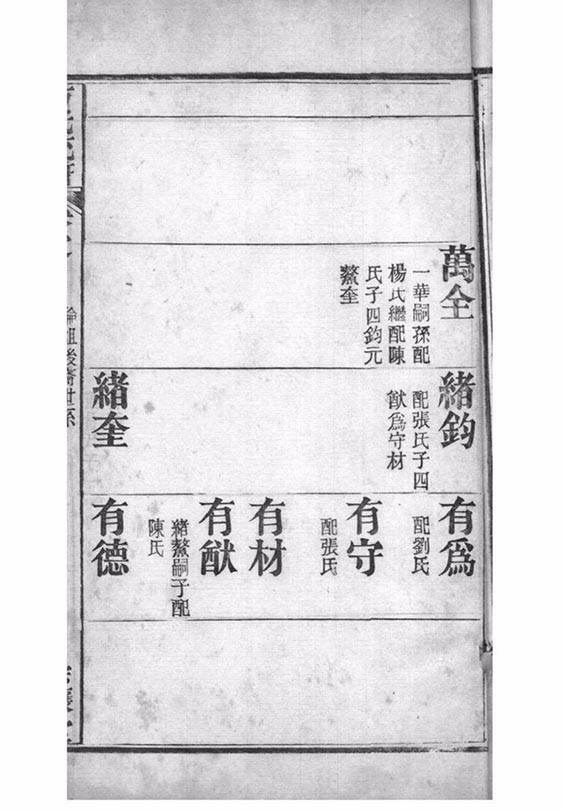 萬全
一華嗣孫配
楊氏繼配陳
氏子四鈞元
鰲奎
緒鈞
配張氏子四
猷為守材
緒奎
有為
配劉氏
有守
配張氏
有材
有猷
緒鰲嗣子配
陳氏
有德
後裔世系